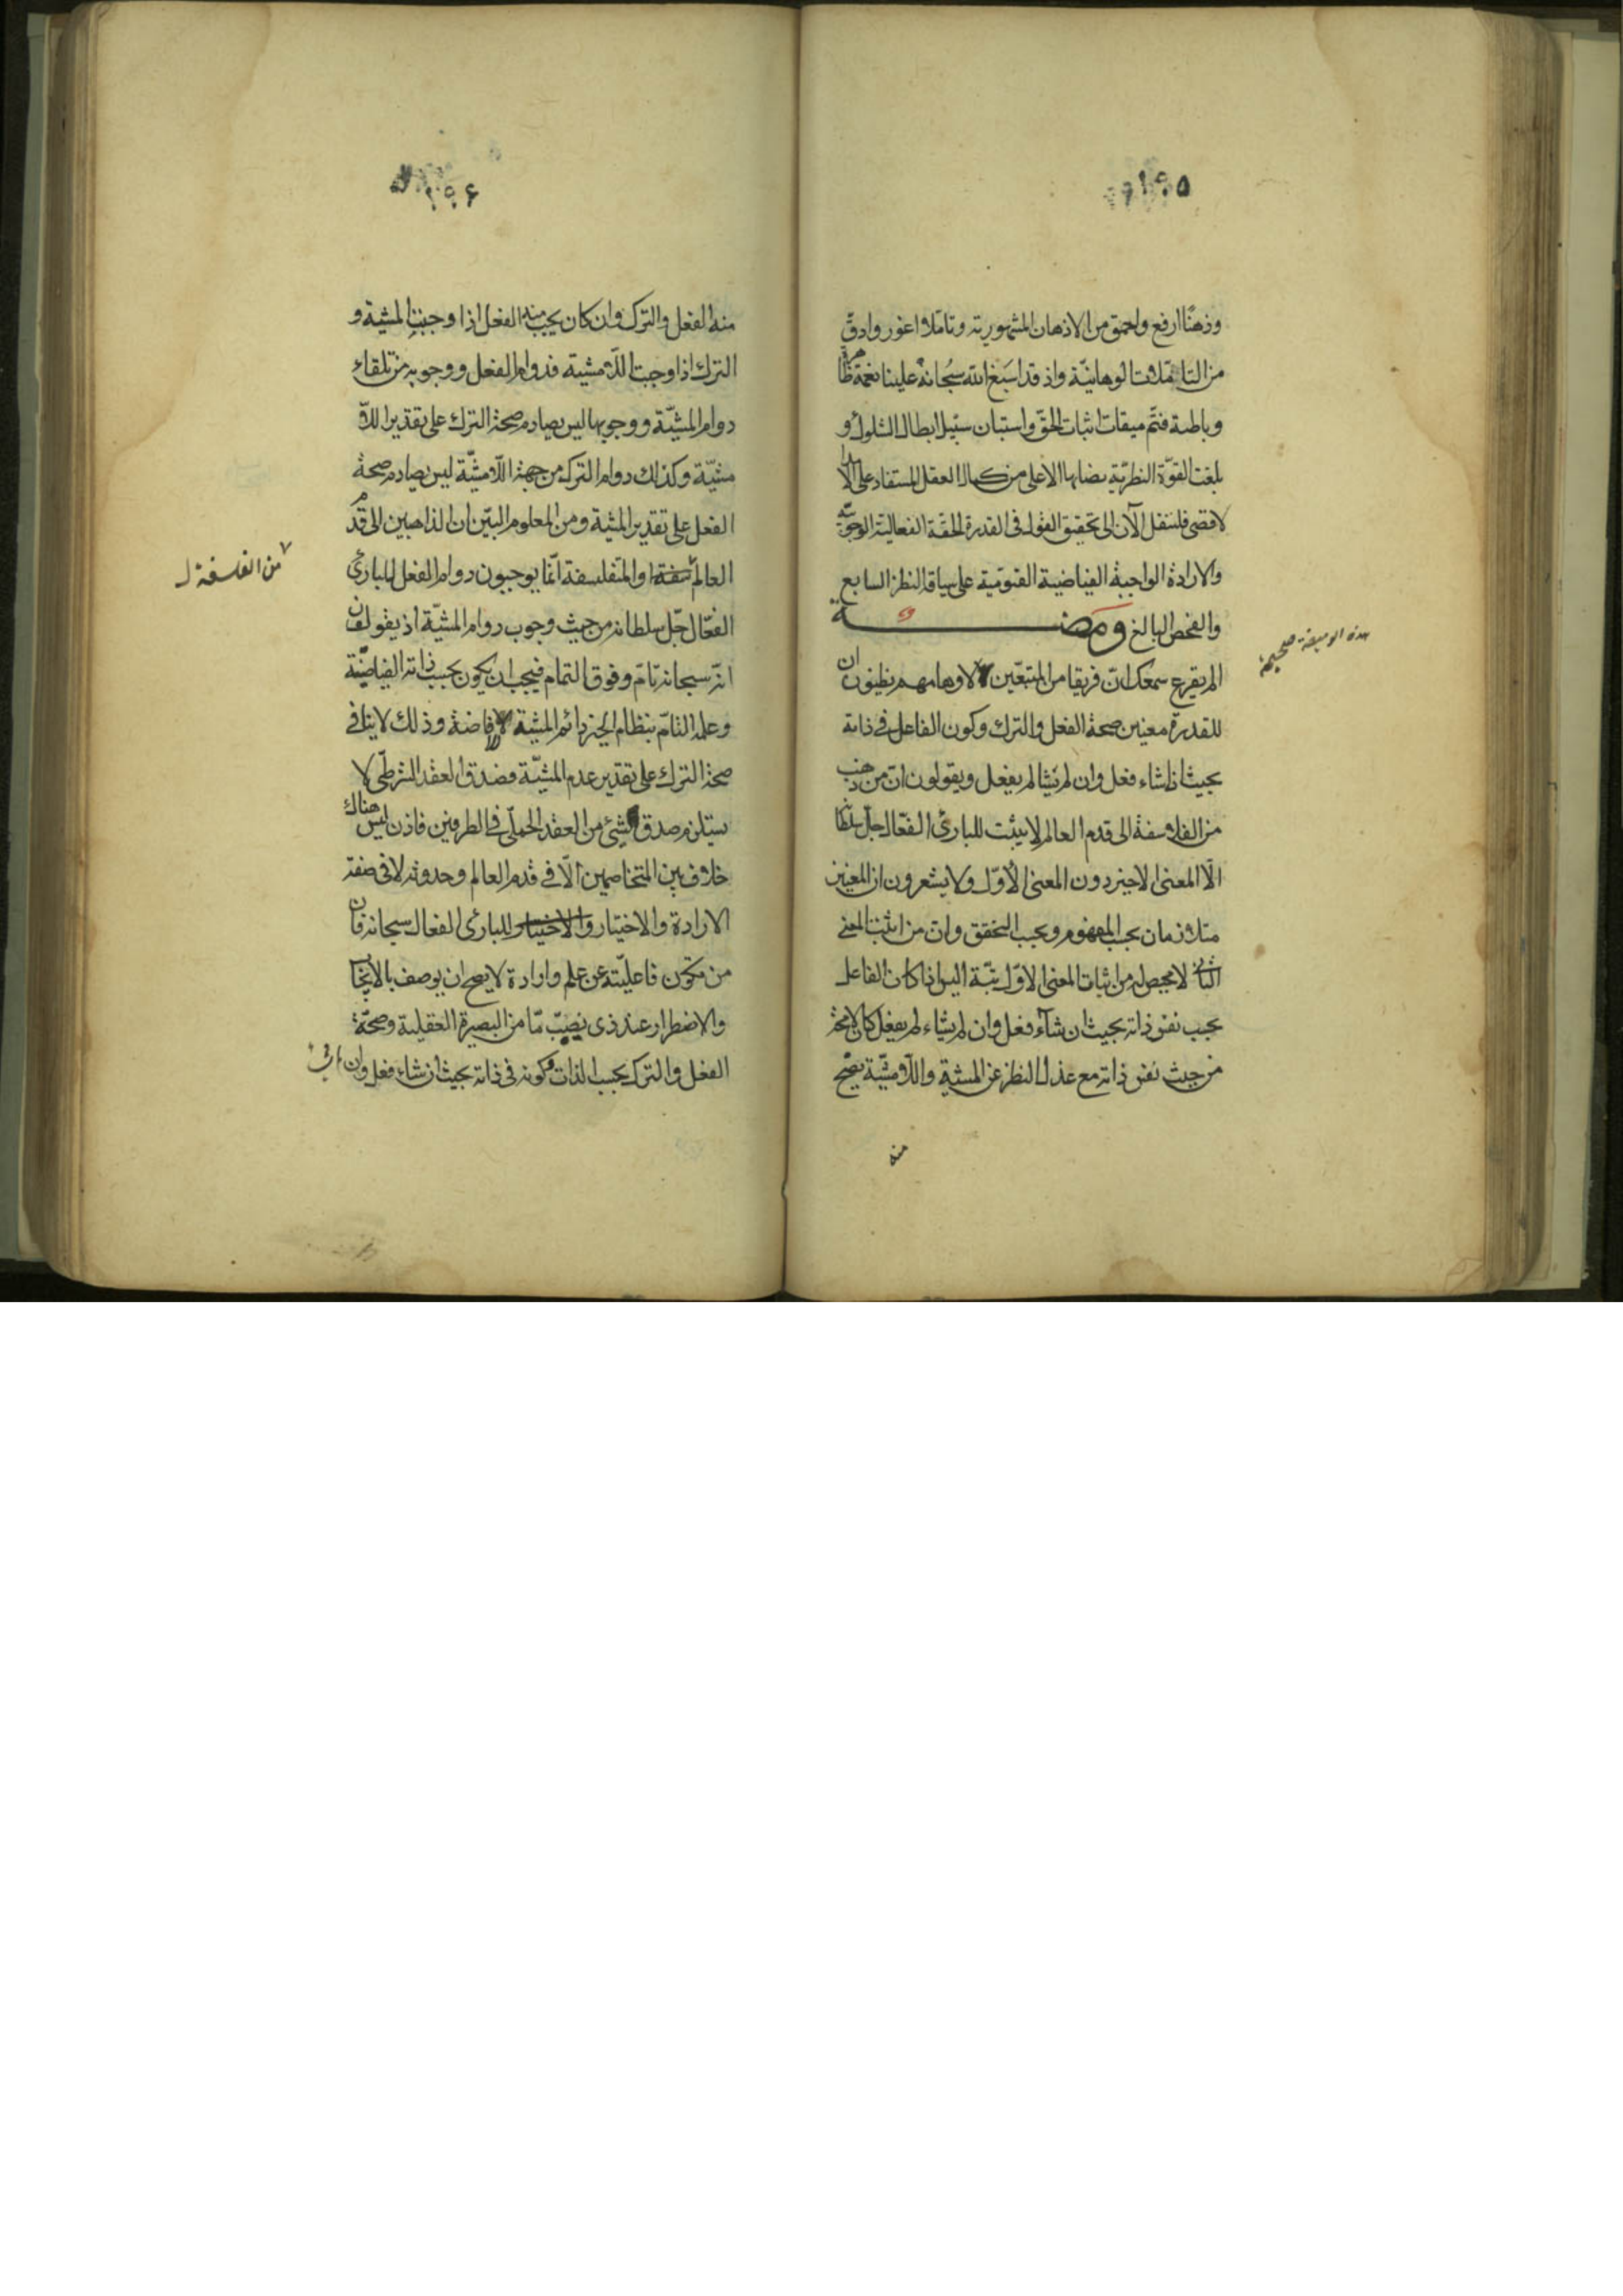 ۱۹۵
وذهنًا ارفع واعمق من الاذهان المشهورية وتاملا اغور وادقّ
من التاملات الوهانيّة واذ قد اسبغ الله سبحانه علينا نعمه ظاهرة
وباطنة فتمّ ميقات اثبات الحقّ واستبان سبيل ابطال الشكوك و
بلغت القوّة النظريّة نصابها الاعلى من كمال العقل المستفاد على الامد
الاقصى فلننتقل الآن الى تحقيق القول فى القدرة الحقّة الفعالية الوجوبيّة
والارادة الواجبة الفياضية القيوّمية على سياقة النظر السابع
والفحص البالغ ومضة
هذه الوميضة صحيحة
الم يقرع سمعك انّ فريقا من المتبعّين لاوهامهم يظنون ان
للقدرة معنيين صحة الفعل والترك وكون الفاعل فى ذاته
بحيث اذا شاء فعل وان لم يشا لم يفعل ويقولون انّ من ذهب
من الفلاسفة الى قدم العالم لا يثبت للبارئ الفعّال جلّ سلطانه
الّا المعنى الاخير دون المعنى الاوّل ولا يشعرون ان المعنيين
متلازمان بحسب المفهوم وبحسب التحقق وان من اثبت المعنى
الثانى لا محيص له من اثبات المعنى الاوّل بتّة اليس اذا كان الفاعل
بحسب نفس ذاته بحيث ان شاء فعل وان لم يشاء لم يفعل كان لا محة
من حيث نفس ذاته مع عزل النظر عن المشية واللّامشيّة يصحّ
منه
۱۹۶
منه الفعل والترك وان كان يجب منه الفعل اذا وجبت المشية و
الترك اذا وجبت اللّامشية فدوام الفعل ووجوبه من تلقاء
دوام المشيّة ووجوبها ليس يصادم صحة الترك على تقدير اللّا
مشيّة وكذلك دوام الترك من جهة اللّامشيّة ليس يصادم صحة
الفعل على تقدير المشية ومن المعلوم البيّن ان الذاهبين الى قدم
العالم من الفلسفة والمتفلسفة انّما يوجبون دوام الفعل للبارئ
الفعّال جلّ سلطانه من حيث وجوب دوام المشيّة اذ يقولون
انّه سبحانه تامّ وفوق التمام فيجب ان يكون بحسب ذاته الفياضيّة
وعلمه التامّ بنظام الخير دائم المشية للافاضة وذلك لا ينافى
صحة الترك على تقدير عدم المشيّة فصدق العقد الشرطى لا
يستلزم صدق شئ من العقد الحملىّ فى الطرفين فاذن ليس هناك
خلاف بين المتخاصمين الّا فى قدم العالم وحدوثه لا فى صفة
الارادة والاختيار والاختيار للبارى الفعال سبحانه فان
من تكون فاعليّته عن علم وارادة لا يصح ان يوصف بالايجاب
والاضطرار عند ذى نصيب مّا من البصيرة العقلية وصحّة
الفعل والترك بحسب الذات وكونه فى ذاته بحيث ان شاء فعل وان
من الفلسفة